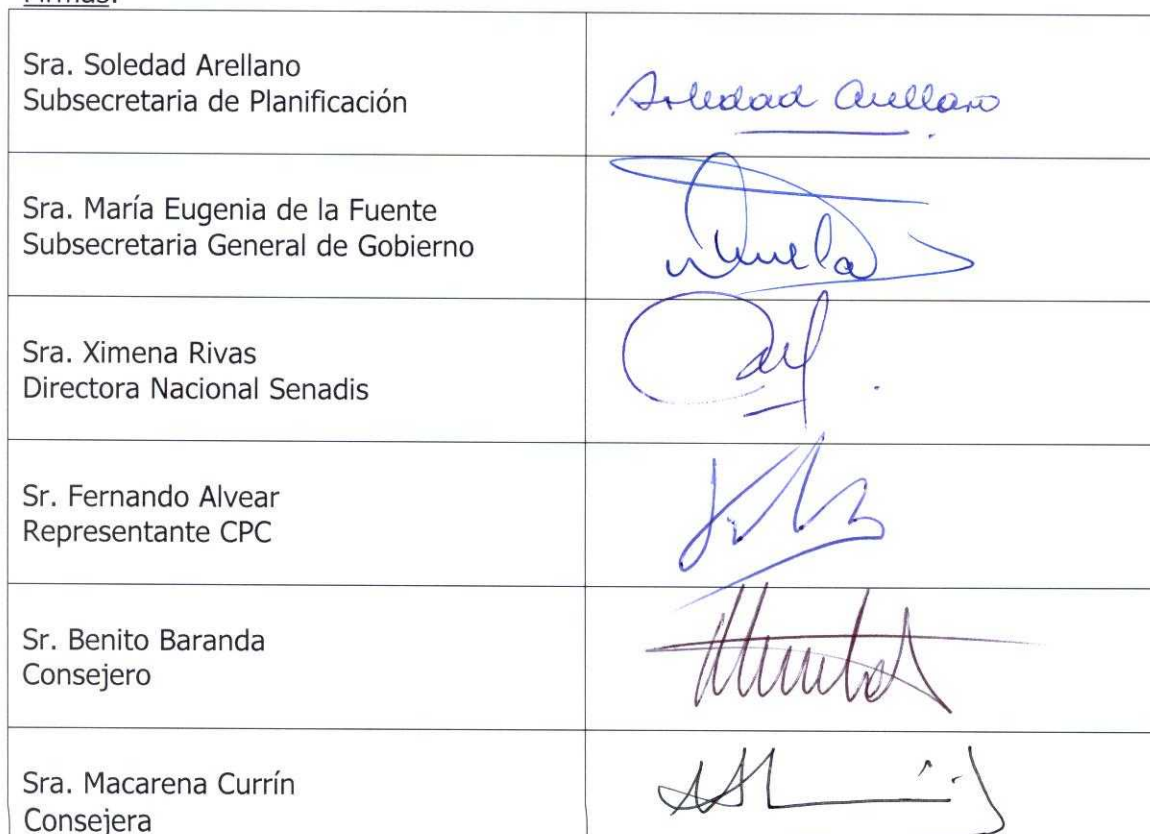 Firmas:
Sra. Soledad Arellano
Subsecretaria de Planificación
Soledad Arellano
Sra. María Eugenia de la Fuente
Subsecretaria General de Gobierno
Sra. Ximena Rivas
Directora Nacional Senadis
Sr. Fernando Alvear
Representante CPC
Sr. Benito Baranda
Consejero
Sra. Macarena Currín
Consejera